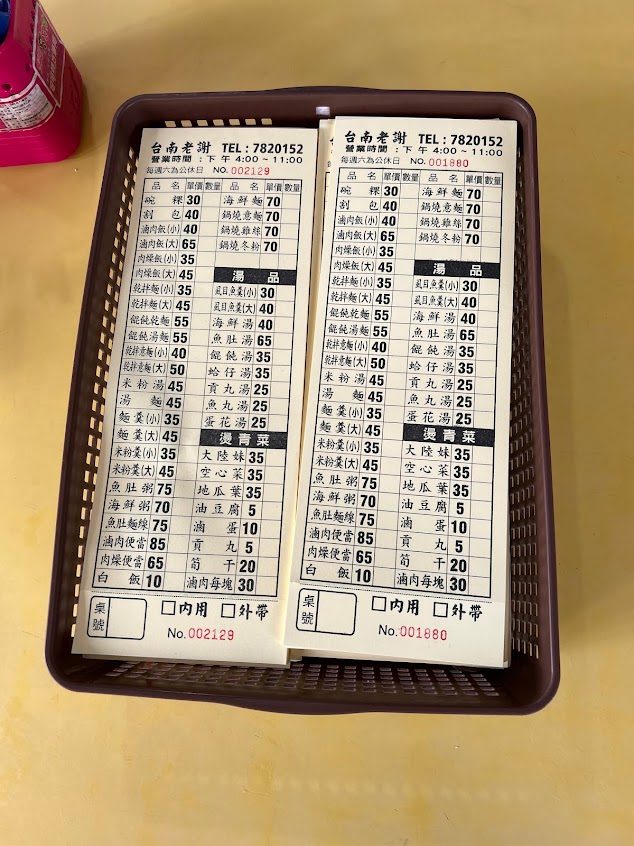 台南老謝 TEL：7820152
營業時間：下午4:00~11:00
每週六為公休日 NO.002129
品名 單價 數量 品名 單價 數量
碗粿 30 海鮮麵 70
割包 40 鍋燒意麵 70
滷肉飯(小) 40 鍋燒雞絲 70
滷肉飯(大) 65 鍋燒冬粉 70
肉燥飯(小) 35
肉燥飯(大) 45 湯品
乾拌麵(小) 35 虱目魚羹(小) 30
乾拌麵(大) 45 虱目魚羹(大) 40
餛飩乾麵 55 海鮮湯 40
餛飩湯麵 55 魚肚湯 65
乾拌意麵(小) 40 餛飩湯 35
乾拌意麵(大) 50 蛤仔湯 35
米粉湯 45 貢丸湯 25
湯麵 45 魚丸湯 25
麵羹(小) 35 蛋花湯 25
麵羹(大) 45 燙青菜
米粉羹(小) 35 大陸妹 35
米粉羹(大) 45 空心菜 35
魚肚粥 75 地瓜葉 35
海鮮粥 70 油豆腐 5
魚肚麵線 75 滷蛋 10
滷肉便當 85 貢丸 5
肉燥便當 65 筍干 20
白飯 10 滷肉每塊 30
桌號 □內用 □外帶
No.002129
台南老謝 TEL：7820152
營業時間：下午4:00~11:00
每週六為公休日 NO.001880
品名 單價 數量 品名 單價 數量
碗粿 30 海鮮麵 70
割包 40 鍋燒意麵 70
滷肉飯(小) 40 鍋燒雞絲 70
滷肉飯(大) 65 鍋燒冬粉 70
肉燥飯(小) 35
肉燥飯(大) 45 湯品
乾拌麵(小) 35 虱目魚羹(小) 30
乾拌麵(大) 45 虱目魚羹(大) 40
餛飩乾麵 55 海鮮湯 40
餛飩湯麵 55 魚肚湯 65
乾拌意麵(小) 40 餛飩湯 35
乾拌意麵(大) 50 蛤仔湯 35
米粉湯 45 貢丸湯 25
湯麵 45 魚丸湯 25
麵羹(小) 35 蛋花湯 25
麵羹(大) 45 燙青菜
米粉羹(小) 35 大陸妹 35
米粉羹(大) 45 空心菜 35
魚肚粥 75 地瓜葉 35
海鮮粥 70 油豆腐 5
魚肚麵線 75 滷蛋 10
滷肉便當 85 貢丸 5
肉燥便當 65 筍干 20
白飯 10 滷肉每塊 30
桌號 □內用 □外帶
No.001880